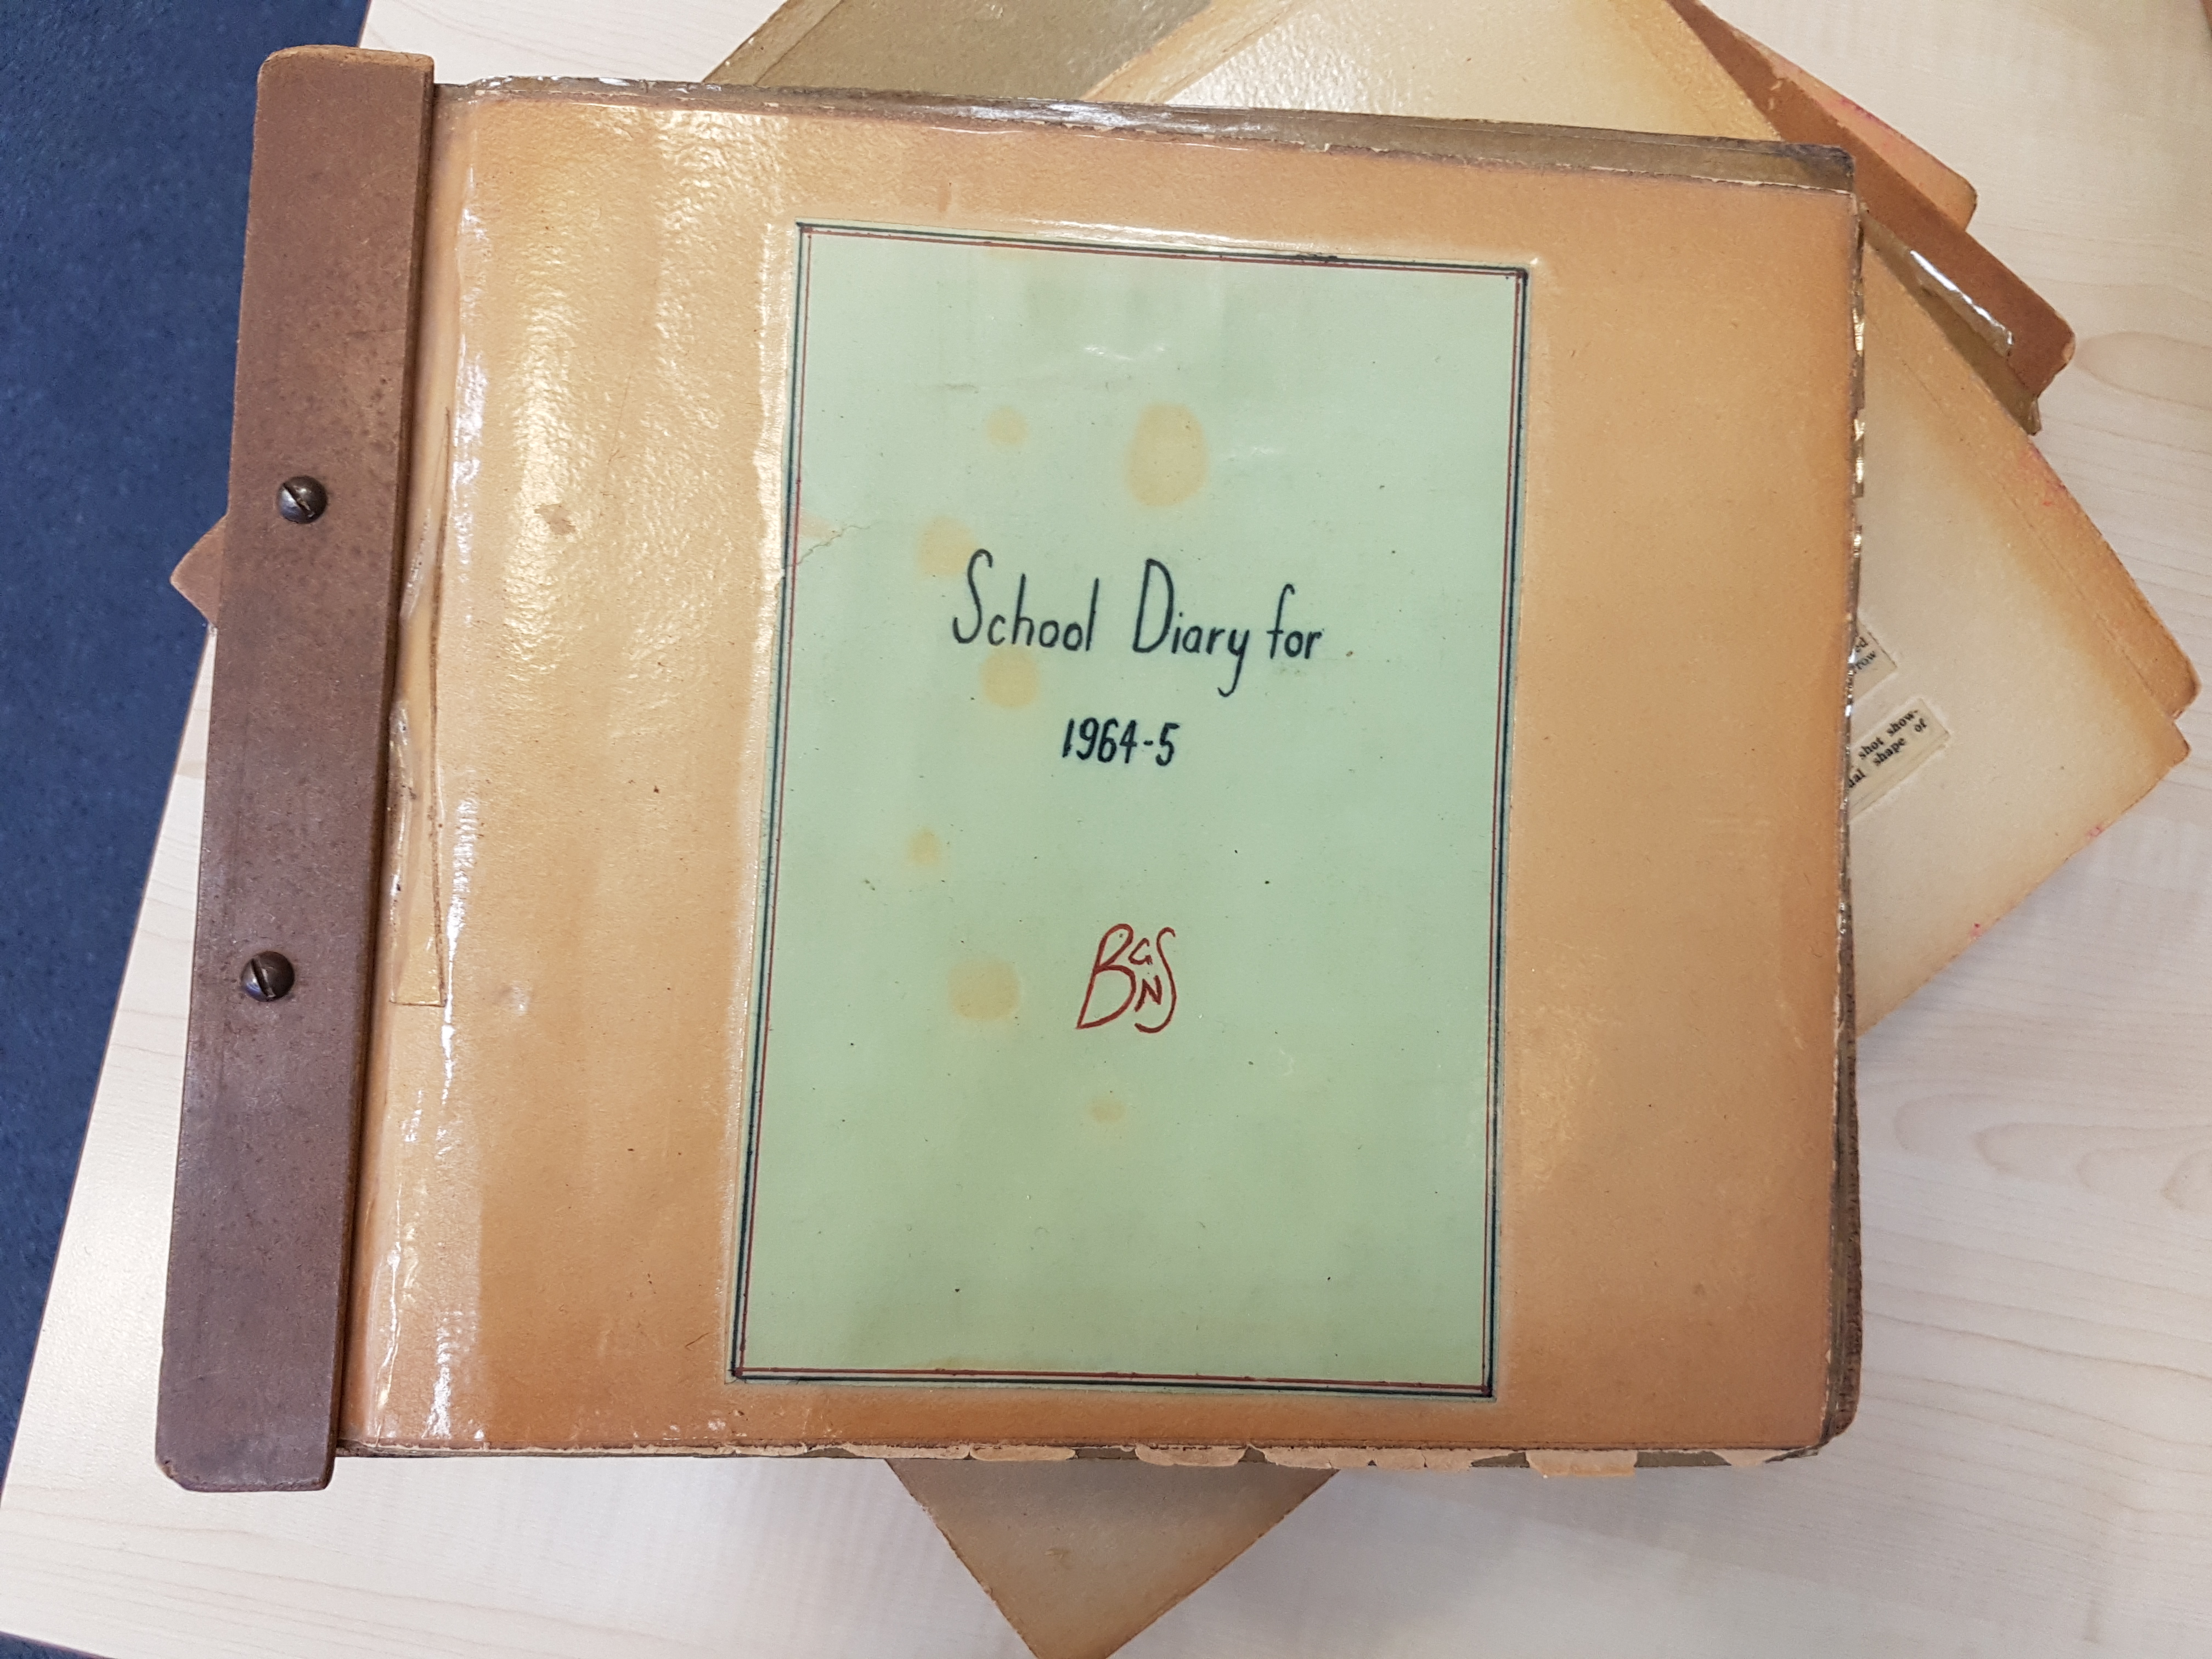 School Diary for
1964-5
BGNS
ed
row
shot show-
al shape of